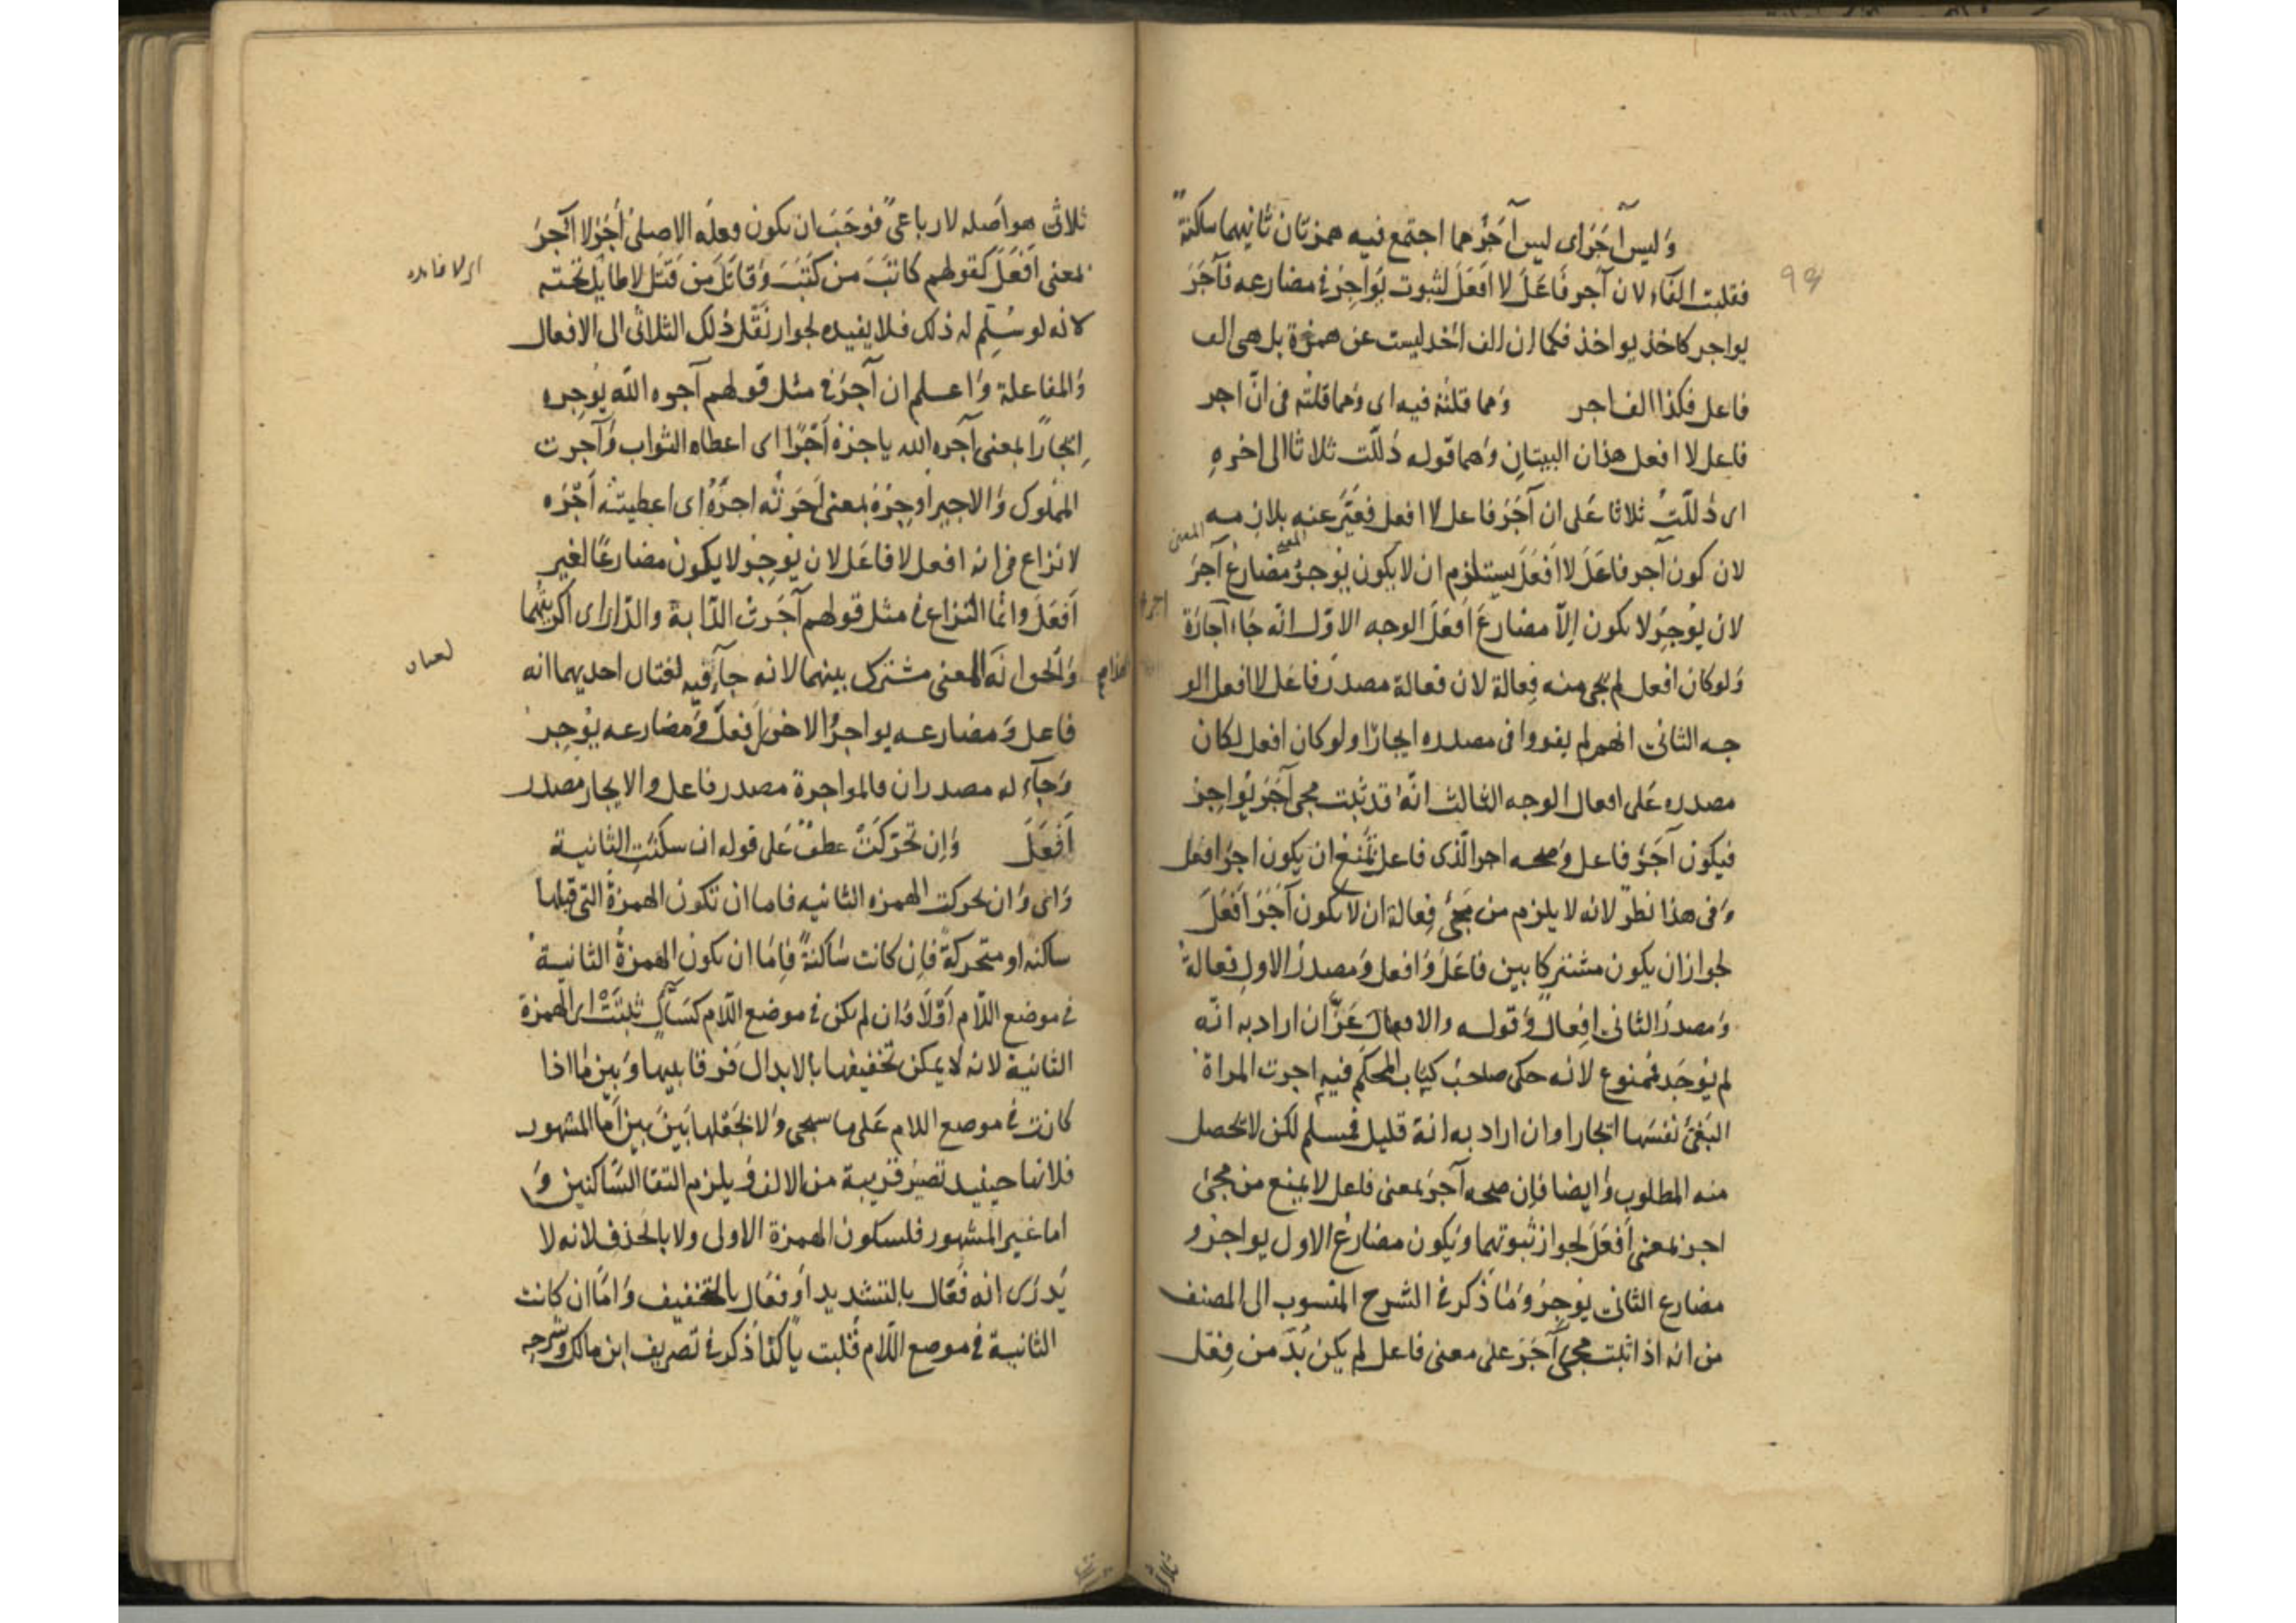 وليس آجر اى ليس آجر مما اجتمع فيه همزتان ثانيهما ساكنة
فقلبت الفاء لان آجر فاعَلَ لا افعَلَ لثبوت يُواجِرُ فى مضارعه فآجَرَ
يواجر كاخذ يواخذ فكما ان الف اخذ ليست عن همزة بل هى الف
فاعل فكذا الف اجر ومما قلته فيه اى ومما قلته فى انّ اجر
فاعل لا افعل هذان البيتان وهما قوله دَلَلّت ثلاثا الى اخره
اى دَلَلّت ثلاثا على ان آجَرَ فاعل لا افعل فعبّر عنه بلازمه
المعنى
لان كون آجر فاعَلَ لا افعَلَ يستلزم ان لا يكون يُوجِرُ مضارع آجرَ
لان يُوجِرُ لا يكون إلاّ مضارعَ أفعَلَ الوجه الاوّل انّه جاء اجارَة
ولو كان افعل لم يجى منه فِعالة لان فعالة مصدر فاعَل لا افعل الو
جه الثانى انهم لم يقولوا فى مصدره ايجارًا ولو كان افعل لكان
مصدره على افعال الوجه الثالث انّه قد ثبت مجى آجَرَ يُواجِرُ
فيكون آجَرُ فاعل وصحه اجر الّذى فاعل تمنع ان يكون اجرَ افعل
وفى هذا نظر لانه لا يلزم من مَجئ فِعالة ان لا يكون آجَرَ أفعَلَ
لجواز ان يكون مشتركا بين فاعَلَ وافعل ومصدرُ الاول فعالة
ومصدرُ الثانى افعال وقوله والافعال عَزّ ان اراد به انّه
لم يُوجَد فممنوع لانه حكى صاحبُ كتاب المحكم فيه اجرت المراة
البَغىّ نفسَها ايجارا وان اراد به انه قليل فمسلم لكن لا يحصل
منه المطلوب وايضا فإن صحه آجرَ بمعنى فاعل لا يمنع من مجئ
اجر بمعنى أفعَلَ لجواز ثبوتهما ويكون مضارع الاول يواجرُ و
مضارع الثانى يوجِرُ وما ذكر فى الشرح المنسوب الى المصنف
من انه اذا ثبت مجئ آجَرَ على معنى فاعل لم يكن بُدّ من فِعل
ثلاثى
ثلاثى هو اصله لا رباعىّ فوجَبَ ان يكون فعله الاصلى أَجَرَ لا آجَرَ
بمعنى أفعَلَ كقولهم كاتَبَ من كَتَبَ وقاتَلَ من قَتَل لا طايل تحته
اى لا فايده
لانه لو سُلّم له ذلك فلا يفيده لجواز نَقْل ذلك الثلاثى الى الافعال
والمفاعلة واعلم ان آجرَ فى مثل قولهم آجره الله يُوجِره
ايجارًا بمعنى آجره الله ياجرُهُ أجْرًا اى اعطاه الثواب وآجرت
المملوك والاجير اوجِرُهُ بمعنى اجرته اجرُهُ اى اعطيته أجْرَه
لا نزاع فى انه افعل لا فاعَل لان يوجِرُ لا يكون مضارعًا لغير
أفعَلَ وانما النزاع فى مثل قولهم آجَرتُ الدّابة والدّار اى اكريتهما
والحق انه المعنى مشترك بينهما لانه جاء فيه لغتان احديهما انه
لغتان
فاعل ومضارعه يواجرُ الاخرى افعل ومضارعه يوجِر
وجاء له مصدران فالمواجرة مصدر فاعل والايجار مصدر
أفعَلَ وإن تحرّكَتْ عطفٌ على قوله ان سكنَتِ الثانية
واى وان تحركت الهمزه الثانيه فاما ان تكون الهمزةُ التى قبلها
ساكنه او متحركةً فإن كانت ساكنةً فإمّا ان يكون الهمزةُ الثانية
فى موضع اللّام أوّلا وان لم يكن فى موضع اللّام كسَأّال ثبتَتْ اى الهمزة
الثانية لانه لا يمكن تخفيفها بالابدال فرقا بينها وبين ما اذا
كانت فى موضع اللام على ما سيجى ولا بجَعْلها بَينَ بينَ أمّا المشهور
فلانها حينيد تصيرُ قريبة من الالف ويلزم التقا السّاكنين و
اما غير المشهور فلسكون الهمزة الاولى ولا بالحَذف لانه لا
يُدرَى انه فعّال بالتشديد أو فعَال بالتخفيف وامّا ان كانت
الثانية فى موضع اللّام قُلبت ياً كما ذكر فى تصريف ابن مالك وشرحِه